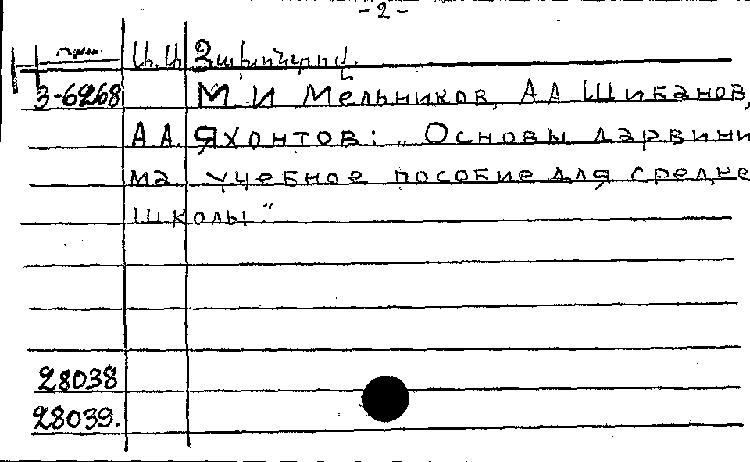 - 2 -
Ա.Ա. Յախոնտով.
3-6268 М И Мельников, А А Шибанов,
А А. Яхонтов: „Основы дарвини
ма учебное пособие для средне
школы."
28038
28039.